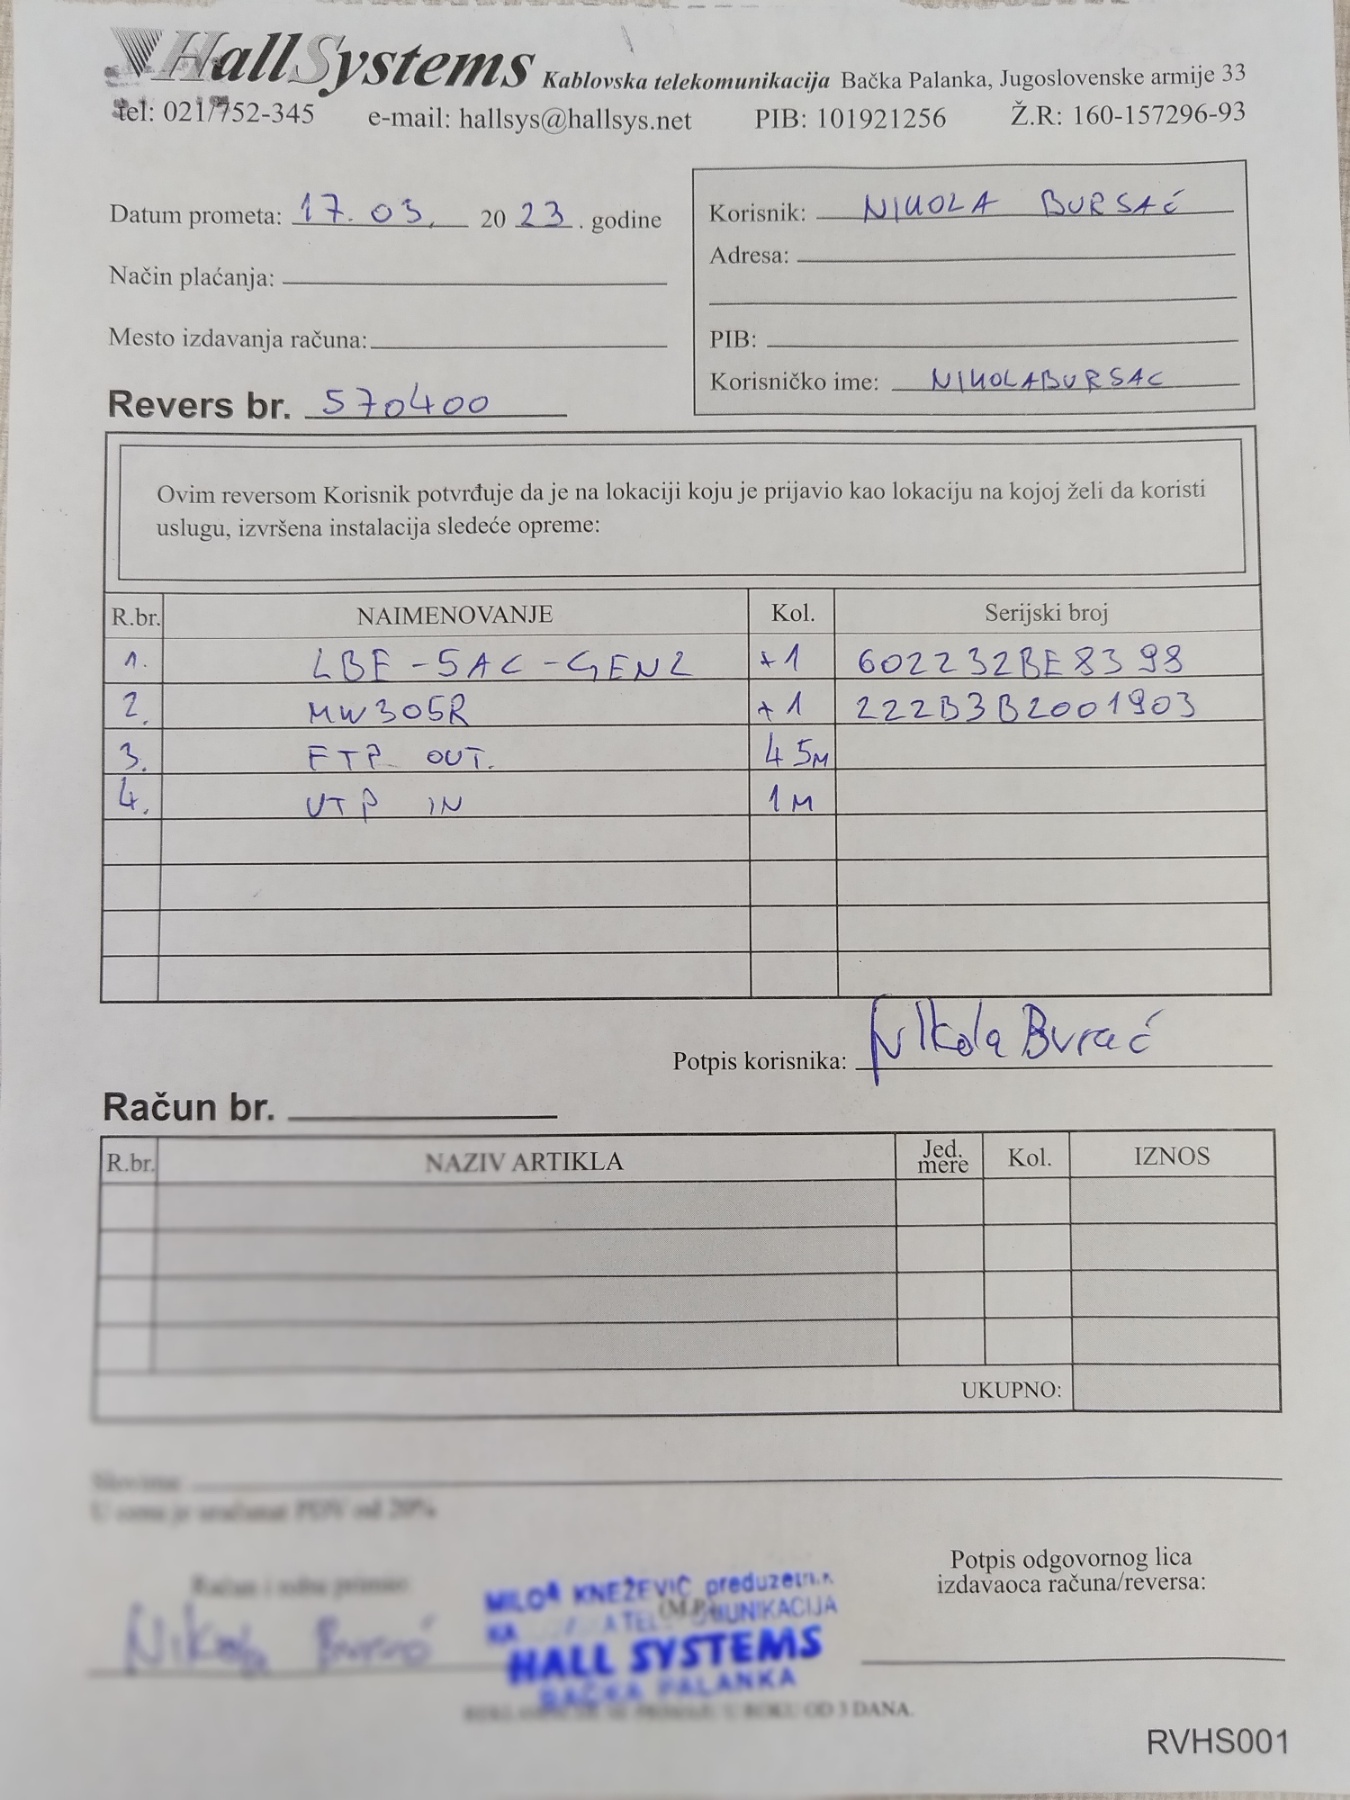 HallSystems Kablovska telekomunikacija Bačka Palanka, Jugoslovenske armije 33
tel: 021/752-345 e-mail: hallsys@hallsys.net PIB: 101921256 Ž.R: 160-157296-93
Datum prometa: 17. 03. 2023. godine
Način plaćanja:
Mesto izdavanja računa:
Revers br. 570400
Korisnik: NIKOLA BURSAĆ
Adresa:
PIB:
Korisničko ime: NIKOLABURSAC
Ovim reversom Korisnik potvrđuje da je na lokaciji koju je prijavio kao lokaciju na kojoj želi da koristi
uslugu, izvršena instalacija sledeće opreme:
R.br. NAIMENOVANJE Kol. Serijski broj
1. LBE-5AC-GEN2 +1 602232BE8398
2. MW305R +1 222B3B2001903
3. FTP OUT. 45M
4. UTP IN 1M
Potpis korisnika: Nikola Bursać
Račun br.
R.br. NAZIV ARTIKLA Jed. mere Kol. IZNOS
UKUPNO:
Slovima:
U cenu je uračunat PDV od 20%
Račun i robu primio
Nikola Bursać
MILOŠ KNEŽEVIĆ preduzetnik
(M.P.)
HALL SYSTEMS
BAČKA PALANKA
Potpis odgovornog lica
izdavaoca računa/reversa:
U ROKU OD 3 DANA.
RVHS001